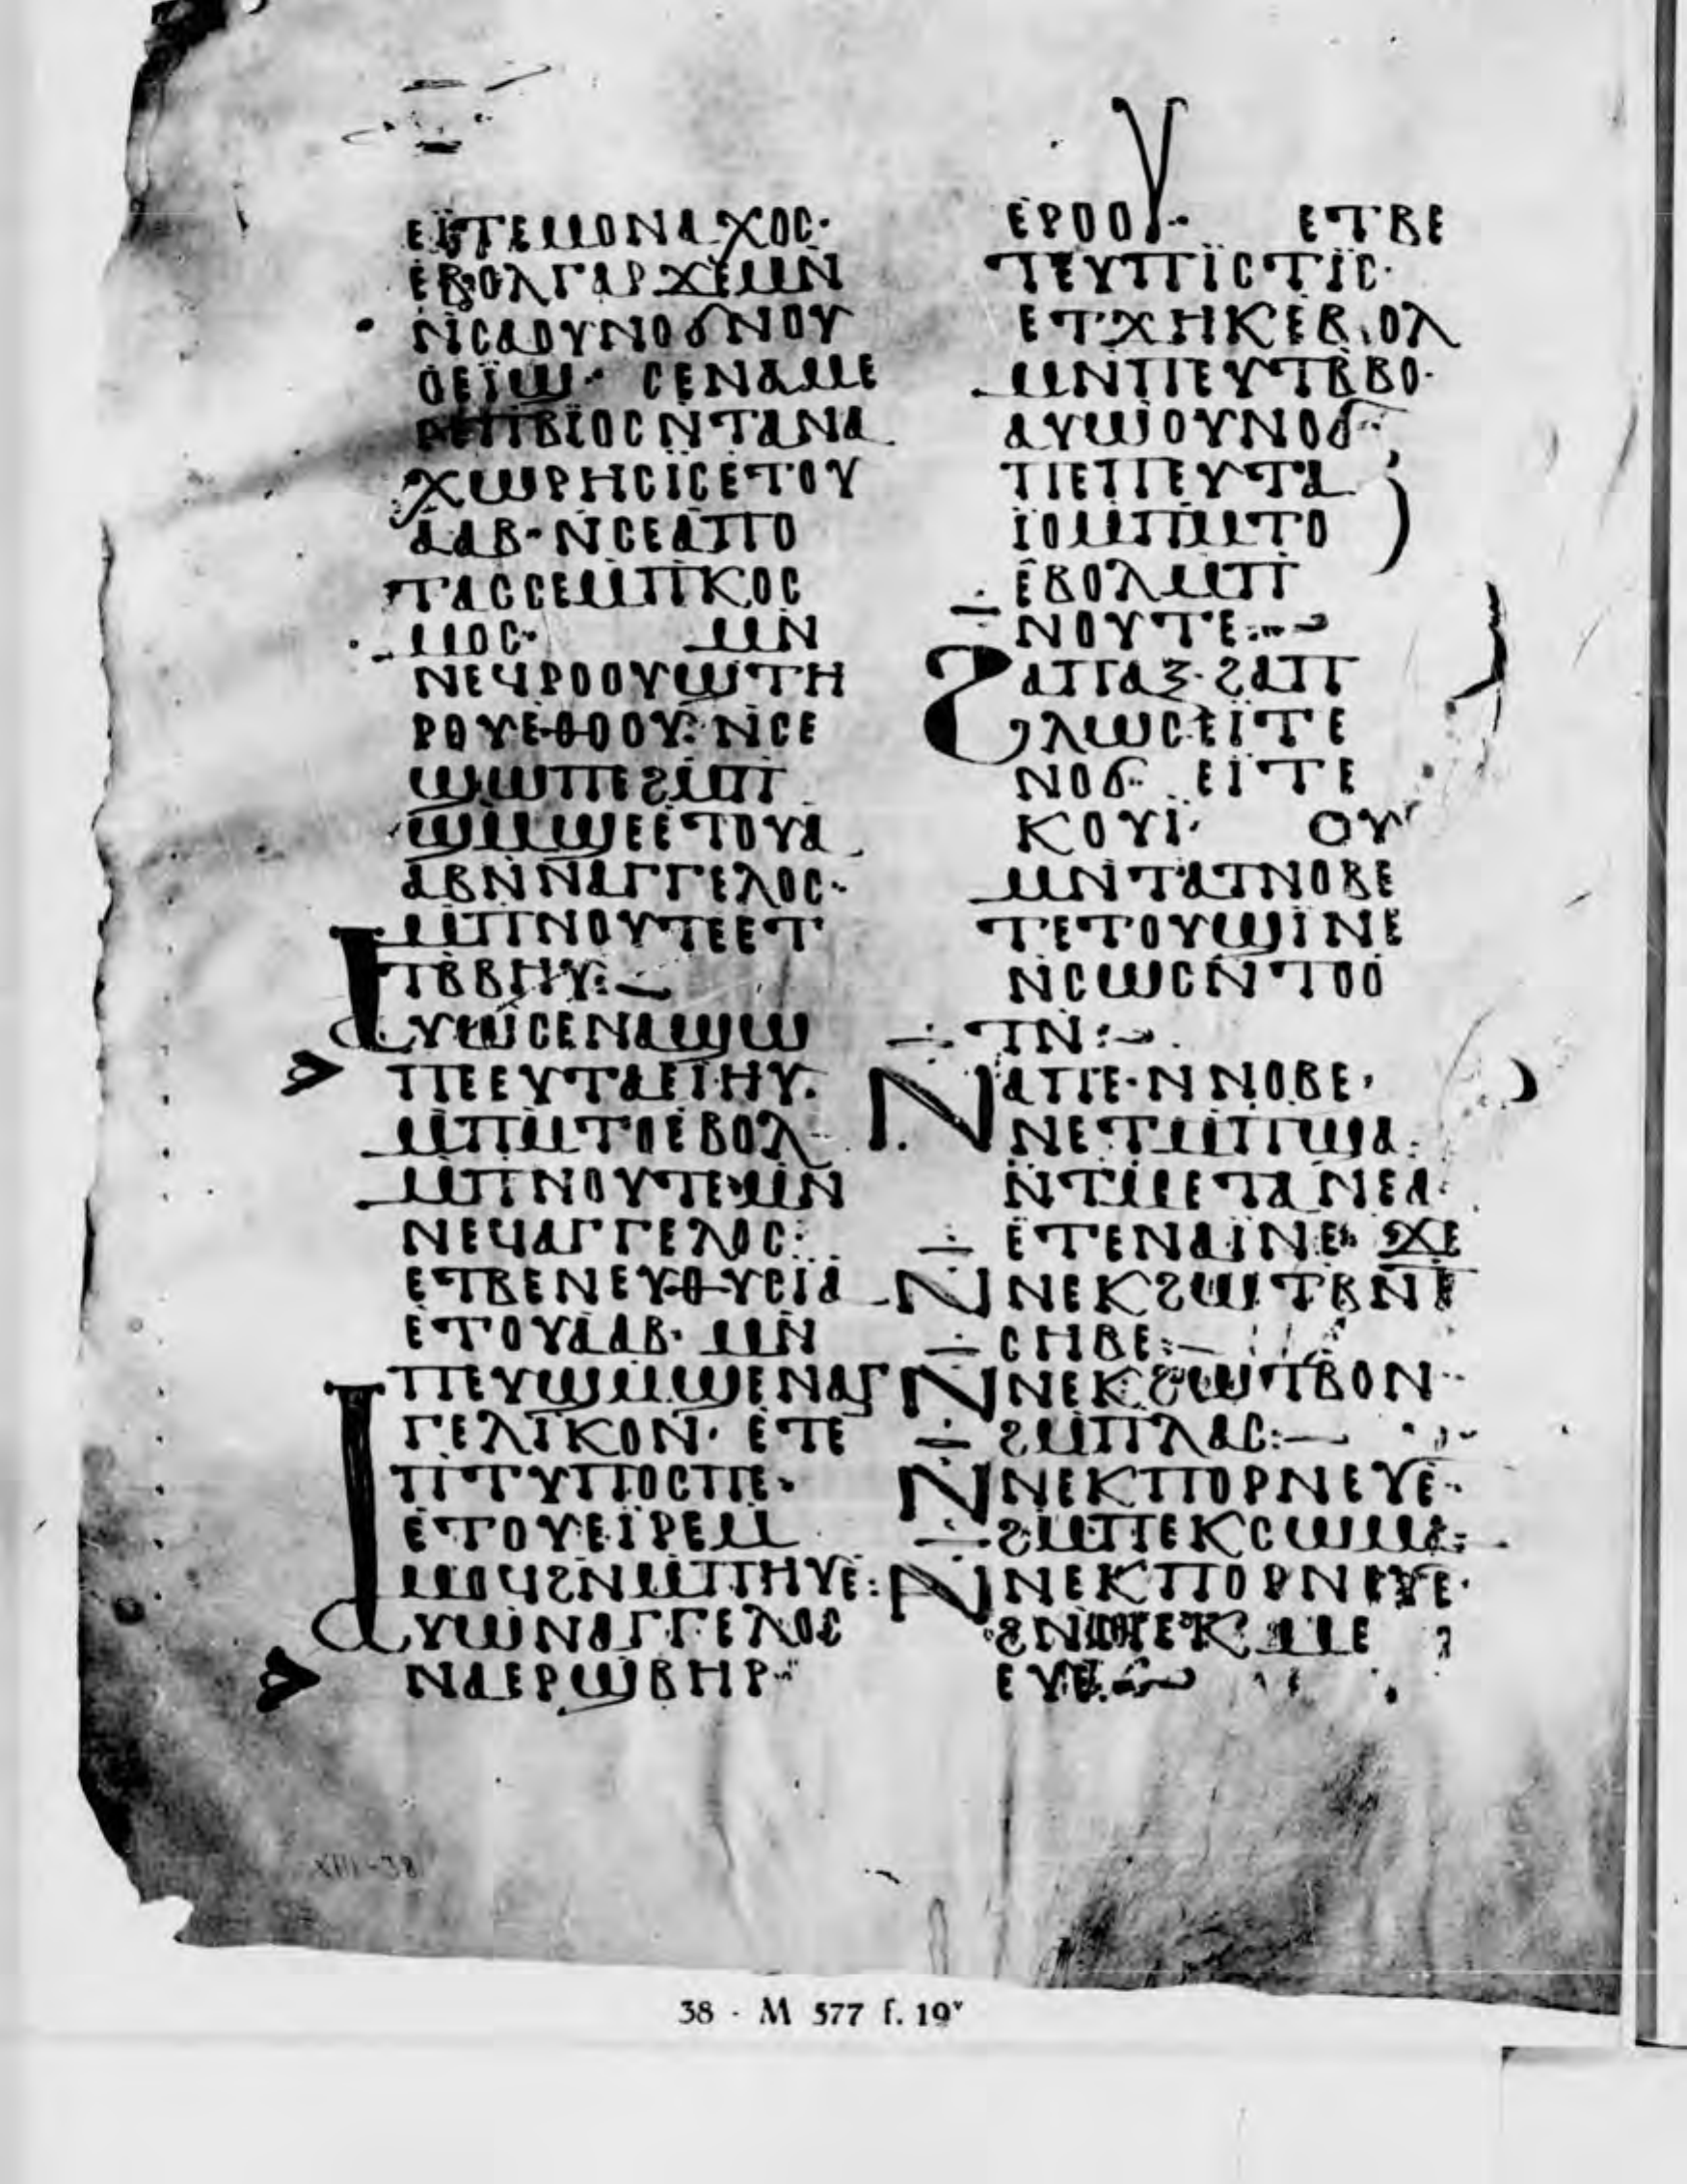 ⲉⲓⲧⲉⲙⲟⲛⲁⲭⲟⲥ·
ⲉⲃⲟⲗⲅⲁⲣϫⲉⲙⲛ
ⲛⲥⲁⲟⲩⲛⲟϭⲛⲟⲩ
ⲟⲉⲓϣ· ⲥⲉⲛⲁⲙⲉ
ⲣⲉⲡⲃⲓⲟⲥⲛⲧⲁⲛⲁ
ⲭⲱⲣⲏⲥⲓⲥⲉⲧⲟⲩ
ⲁⲁⲃ·ⲛⲥⲉⲁⲡⲟ
ⲧⲁⲥⲥⲉⲙⲡⲕⲟⲥ
ⲙⲟⲥ· ⲙⲛ
ⲛⲉϥⲣⲟⲟⲩϣⲧⲏ
ⲣⲟⲩⲉⲑⲟⲟⲩ·ⲛⲥⲉ
ϣⲱⲡⲉϩⲙⲡ
ϣⲙϣⲉⲉⲧⲟⲩⲁ
ⲁⲃⲛⲛⲁⲅⲅⲉⲗⲟⲥ·
ⲙⲡⲛⲟⲩⲧⲉⲉⲧ
ⲧⲃⲃⲏⲩ:—
ⲁⲩⲱⲥⲉⲛⲁϣⲱ
ⲡⲉⲉⲩⲧⲁⲉⲓⲏⲩ·
ⲙⲡⲙⲧⲟⲉⲃⲟⲗ
ⲙⲡⲛⲟⲩⲧⲉ·ⲙⲛ
ⲛⲉϥⲁⲅⲅⲉⲗⲟⲥ:
ⲉⲧⲃⲉⲛⲉⲩⲑⲩⲥⲓⲁ
ⲉⲧⲟⲩⲁⲁⲃ· ⲙⲛ
ⲡⲉⲩϣⲙϣⲉⲛⲁⲅ
ⲅⲉⲗⲓⲕⲟⲛ· ⲉⲧⲉ
ⲡⲧⲩⲡⲟⲥⲡⲉ·
ⲉⲧⲟⲩⲉⲓⲣⲉⲙ
ⲙⲟϥϩⲛⲙⲡⲏⲩⲉ:
ⲁⲩⲱⲛⲁⲅⲅⲉⲗⲟⲥ
ⲛⲁⲉⲣϣⲃⲏⲣ·
ⲉⲣⲟⲟⲩ· ⲉⲧⲃⲉ
ⲧⲉⲩⲡⲓⲥⲧⲓⲥ·
ⲉⲧϫⲏⲕⲉⲃⲟⲗ
ⲙⲛⲡⲉⲩⲧⲃⲃⲟ·
ⲁⲩⲱⲟⲩⲛⲟϭ·
ⲡⲉⲡⲉⲩⲧⲁ
ⲓⲟⲙⲡⲙⲧⲟ
ⲉⲃⲟⲗⲙⲡ
ⲛⲟⲩⲧⲉ:—
ϩⲁⲡⲁⲝ·ϩⲁⲡ
ⲗⲱⲥⲉⲓⲧⲉ
ⲛⲟϭ· ⲉⲓⲧⲉ
ⲕⲟⲩⲓ· ⲟⲩ
ⲙⲛⲧⲁⲧⲛⲟⲃⲉ
ⲧⲉⲧⲟⲩϣⲓⲛⲉ
ⲛⲥⲱⲥⲛⲧⲟⲟ
ⲧⲛ:—
ⲛⲁⲡⲉ·ⲛⲛⲟⲃⲉ·
ⲛⲉⲧⲙⲡϣⲁ
ⲛⲧⲙⲉⲧⲁⲛⲉⲁ·
ⲉⲧⲉⲛⲁⲓⲛⲉ· ϫⲉ
ⲛⲛⲉⲕϩⲱⲧⲃⲛ
ⲥⲏⲃⲉ:—
ⲛⲛⲉⲕϩⲱⲧⲃⲟⲛ
ϩⲙⲡⲗⲁⲥ:—
ⲛⲛⲉⲕⲡⲟⲣⲛⲉⲩⲉ·
ϩⲙⲡⲉⲕⲥⲱⲙⲁ:
ⲛⲛⲉⲕⲡⲟⲣⲛⲉⲩⲉ·
ⲙⲉ
ⲉⲩⲉ:
XIII-38
38 · M 577 f. 19ᵛ